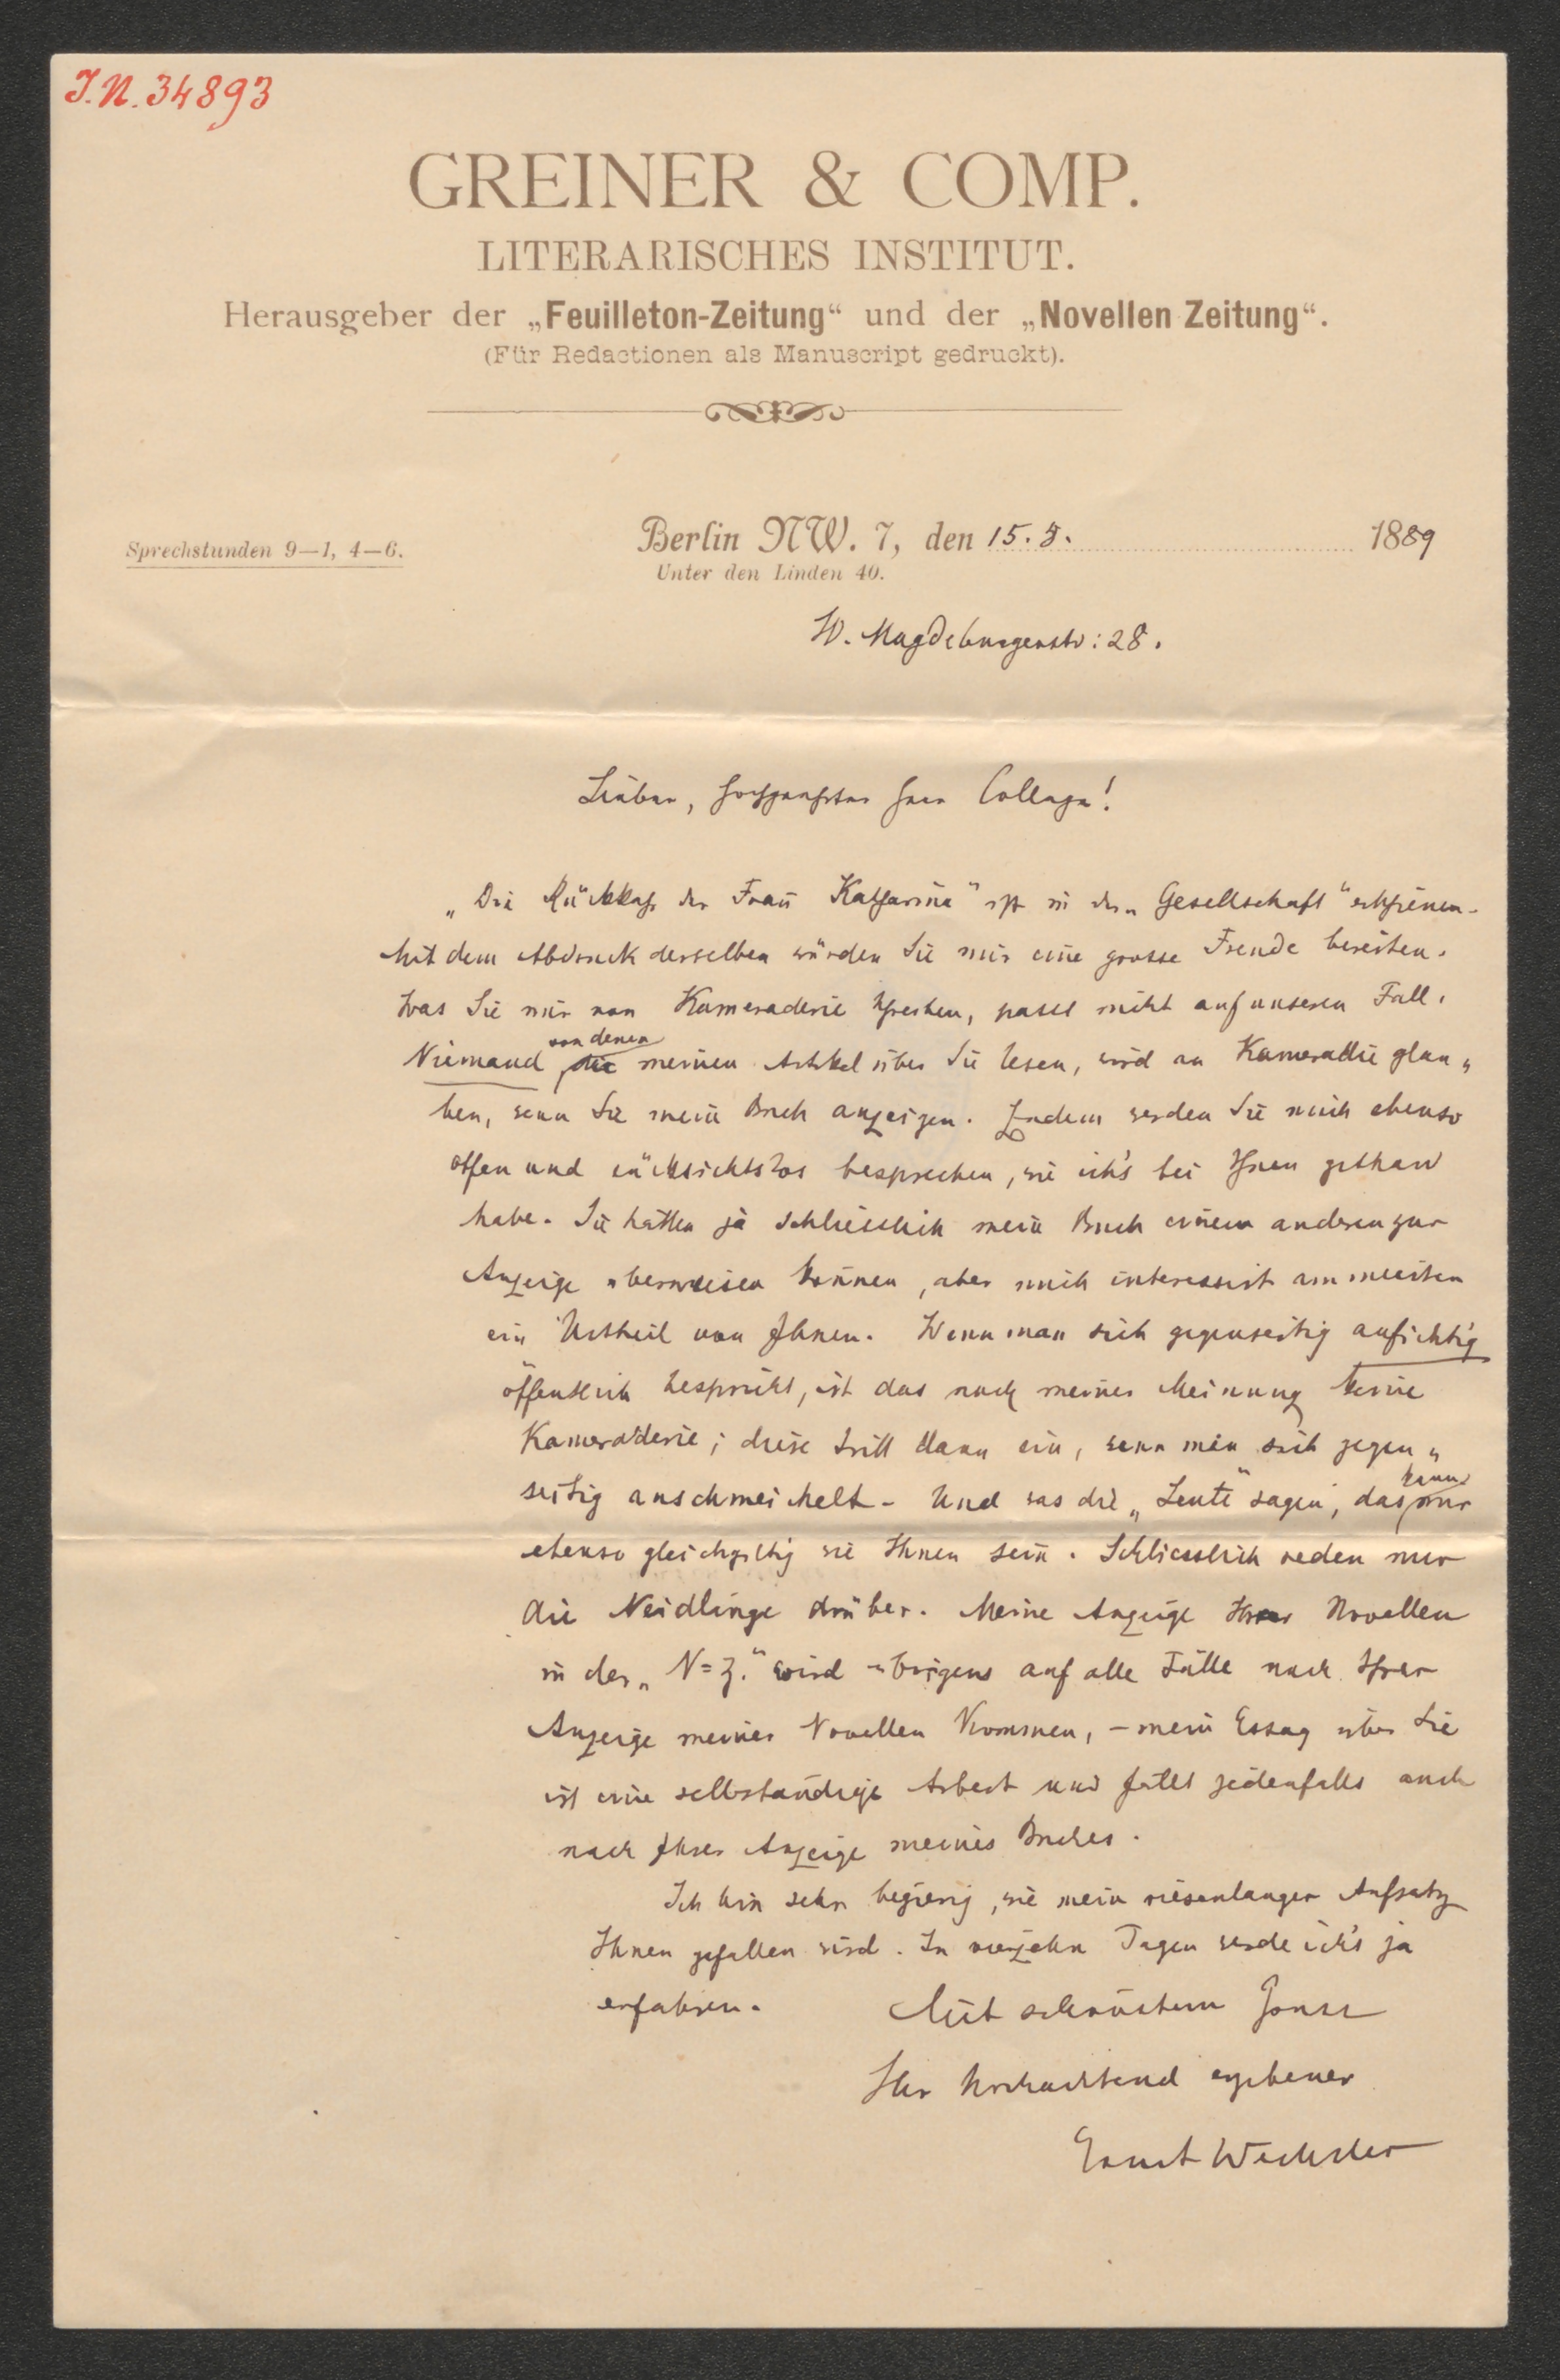 I.N. 34893
GREINER & COMP.
LITERARISCHES INSTITUT.
Herausgeber der „Feuilleton-Zeitung“ und der „Novellen Zeitung“.
(Für Redactionen als Manuscript gedruckt).
Sprechstunden 9—1, 4—6.
Berlin NW. 7, den 15. 3. 1889
Unter den Linden 40.
W. Magdeburgerstr: 28.
Lieber, hochgeehrter Herr College!
„Die Rückkehr der Frau Katharina“ ist in der „Gesellschaft“ erschienen.
Mit dem Abdruck derselben würden Sie mir eine grosse Freude bereiten.
Was Sie mir von Kameraderie schreiben, passt nicht auf unseren Fall.
von denen
Niemand, die meinen Artikel über Sie lesen, wird an Kameraderie glau„
ben, wenn Sie mein Buch anzeigen. Zudem werden Sie mich ebenso
offen und rücksichtslos besprechen, wie ich's bei Ihnen gethan
habe. Sie hätten ja schliesslich mein Buch einem anderen zur
Anzeige überweisen können, aber mich interessirt am meisten
ein Urtheil von Ihnen. Wenn man sich gegenseitig aufrichtig
öffentlich bespricht, ist das nach meiner Meinung keine
Kameraderie; diese tritt dann ein, wenn man sich gegen„
seitig anschmeichelt. Und was die „Leute“ sagen, das
kann
mir
ebenso gleichgiltig wie Ihnen sein. Schliesslich reden nur
die Neidlinge drüber. Meine Anzeige Ihrer Novellen
in der „N=Z.“ wird übrigens auf alle Fälle nach Ihrer
Anzeige meiner Novellen kommen, – mein Essay über Sie
ist eine selbständige Arbeit und fällt jedenfalls auch
nach Ihrer Anzeige meines Buches.
Ich bin sehr begierig, wie mein riesenlanger Aufsatz
Ihnen gefallen wird. In vierzehn Tagen werde ich's ja
erfahren. Mit schönstem Gruss
Ihr hochachtend ergebener
Ernst Wechsler